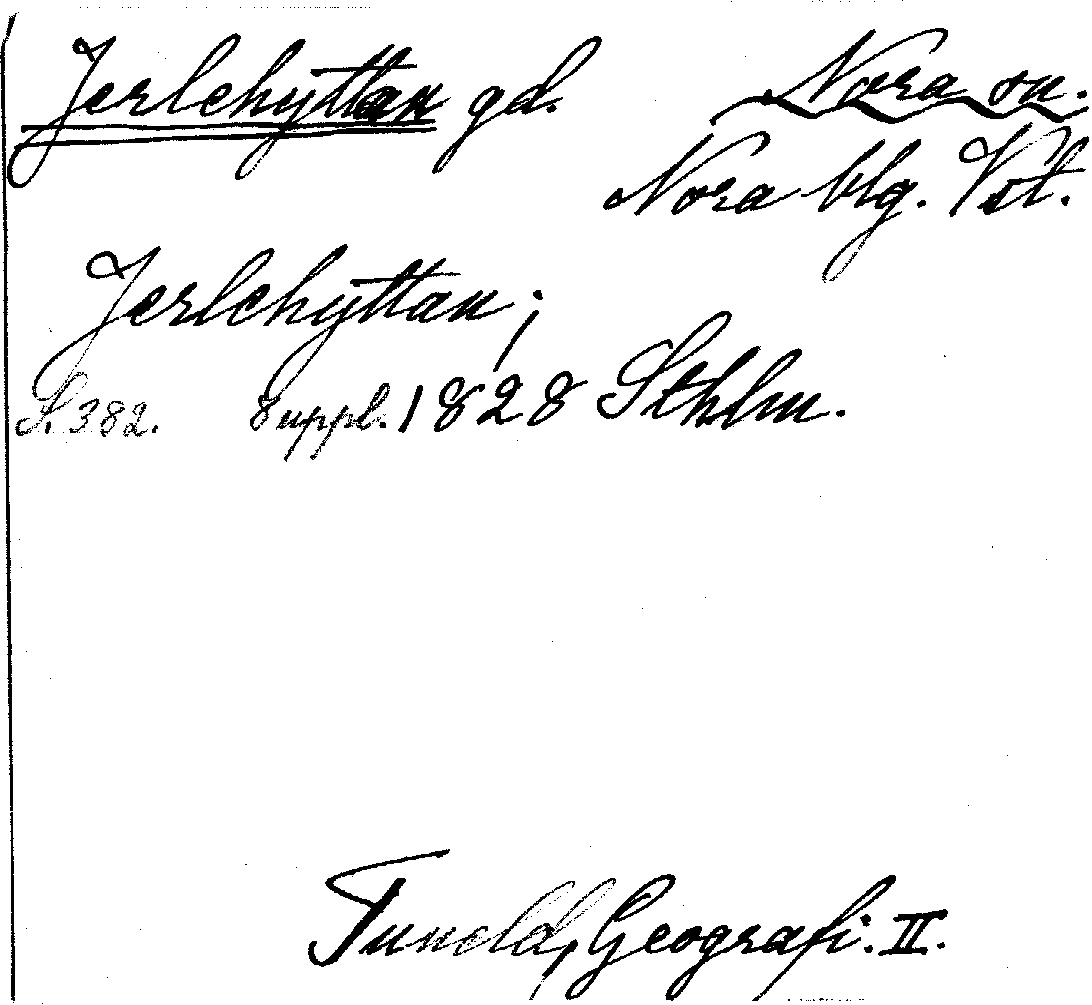 Jerlehyttan gd. Nora sn.
Nora blg. Vst.
Jerlehyttan;
S. 382. Suppl. 1828 Sthlm.
Tuneld, Geografi. II.